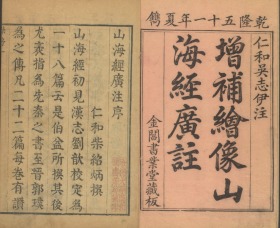 乾隆五十一年夏鐫
仁和吳志伊注
增補繪像山
海經廣註
金閶書業堂藏板
山海經廣注序
仁和柴紹炳撰
山海經初見漢志劉歆校定為
一十八篇云是伯益所撰其後
尤袤指為先秦之書至晉郭璞
為之傳凡二十三篇每卷有讚